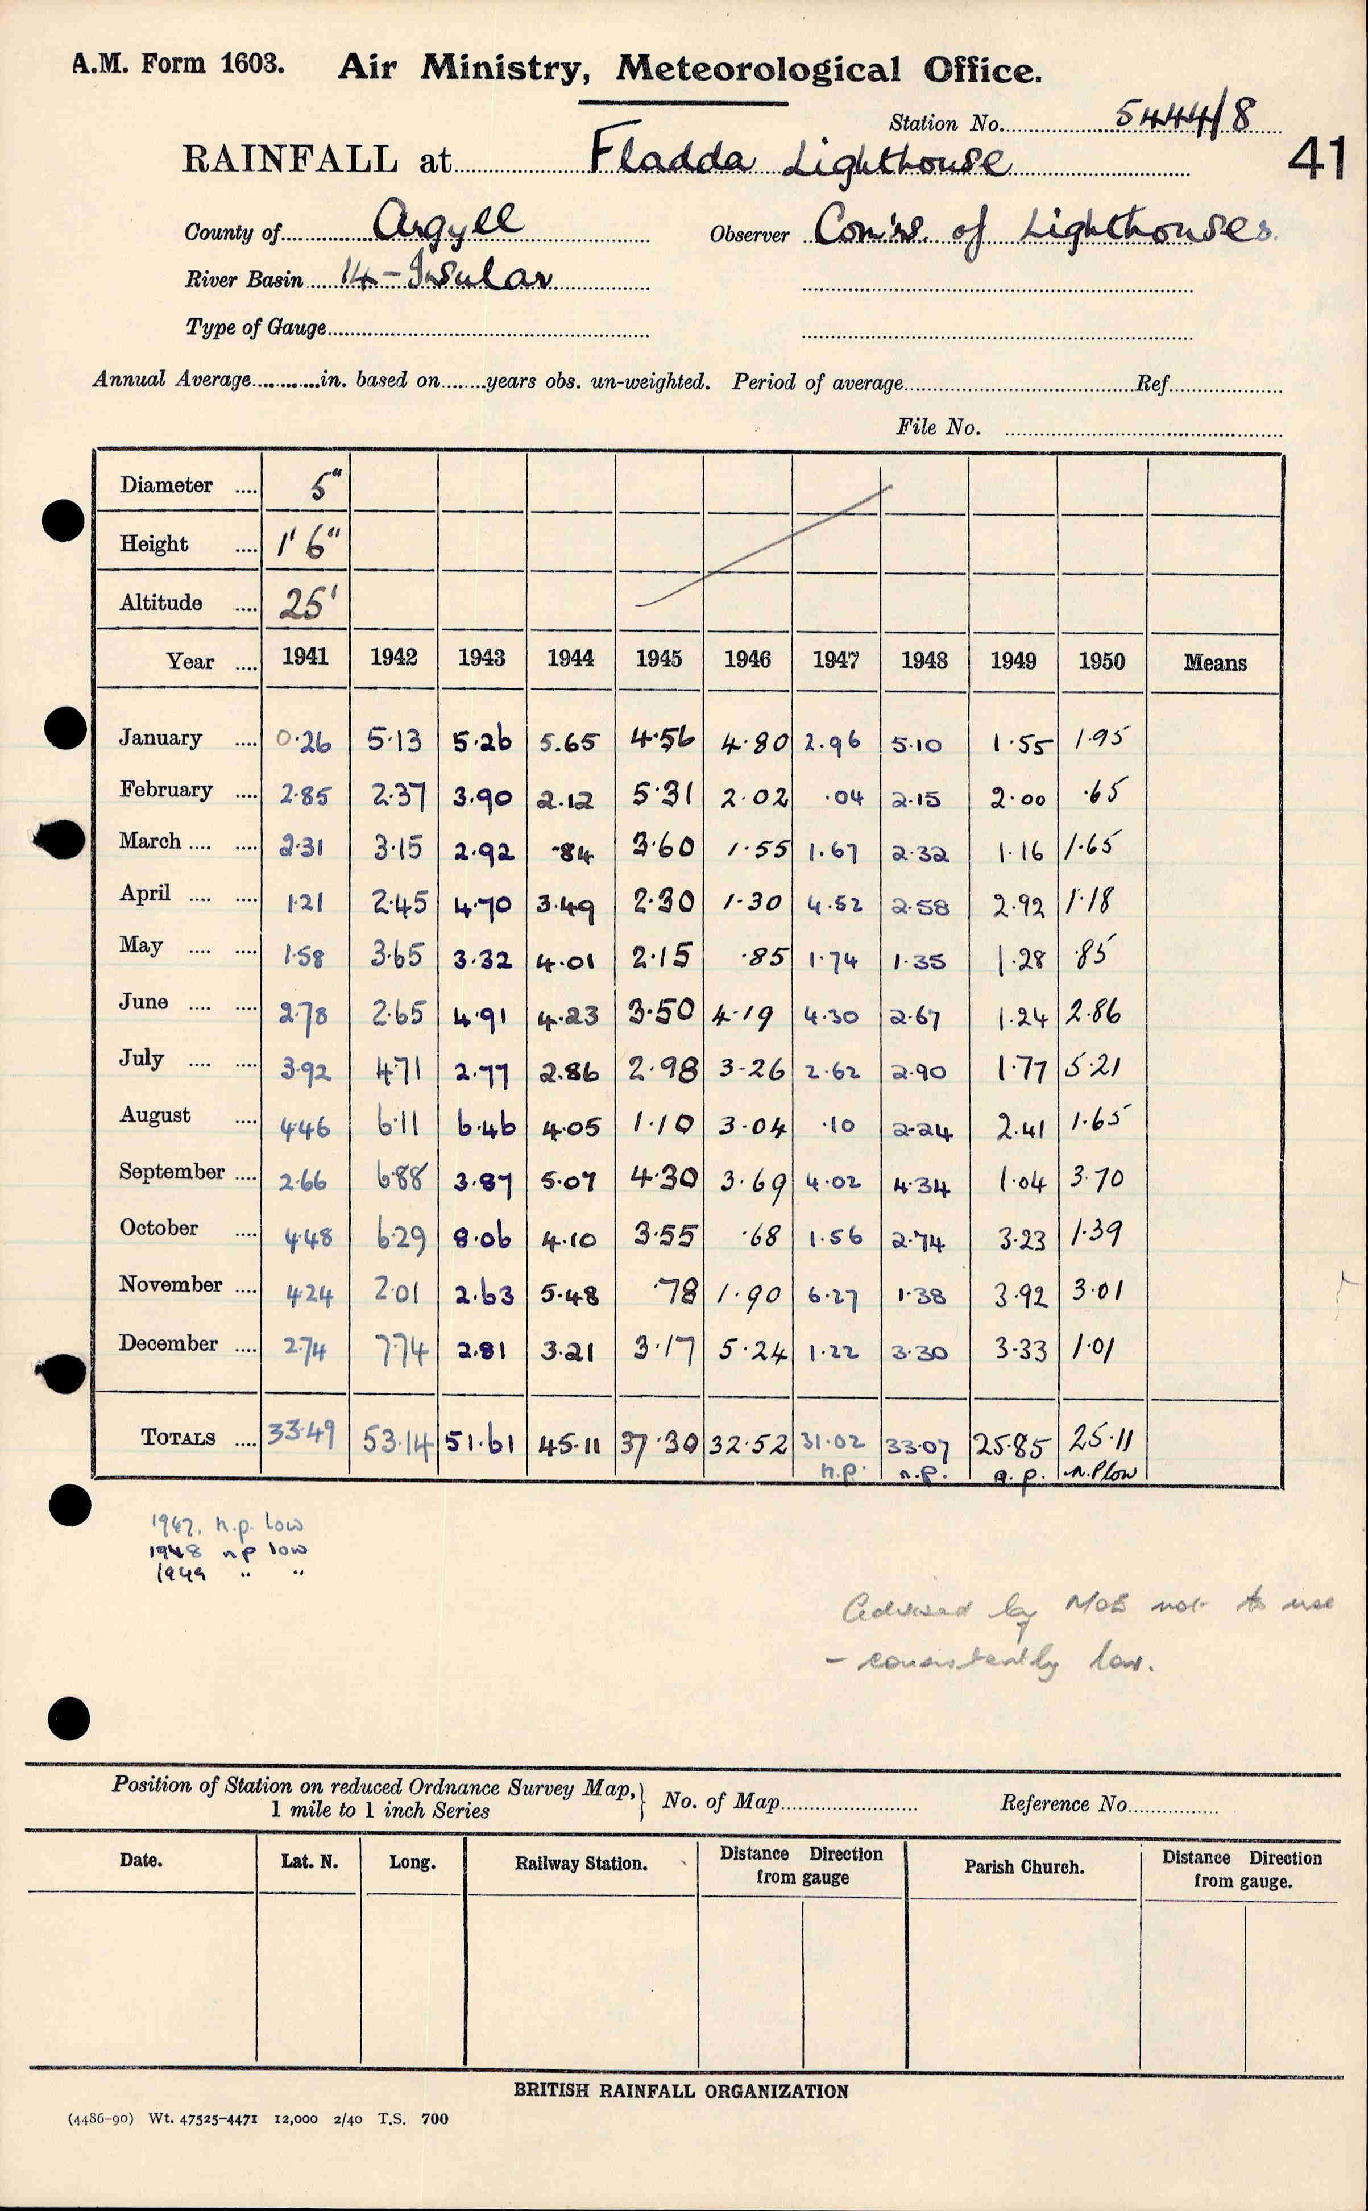 A.M. Form 1603. Air Ministry, Meteorological Office.
Station No. 5444/8
RAINFALL at Fladda Lighthouse 41
County of Argyll Observer Com'rs. of Lighthouses.
River Basin 14 - Insular
Type of Gauge
Annual Average in. based on years obs. un-weighted. Period of average Ref.
File No.
Diameter 5"
Height 1' 6"
Altitude 25'
Year 1941 1942 1943 1944 1945 1946 1947 1948 1949 1950 Means
January 0.26 5.13 5.26 5.65 4.56 4.80 2.96 5.10 1.55 1.95
February 2.85 2.37 3.90 2.12 5.31 2.02 .04 2.15 2.00 .65
March 2.31 3.15 2.92 .84 3.60 1.55 1.67 2.32 1.16 1.65
April 1.21 2.45 4.70 3.49 2.30 1.30 4.52 2.58 2.92 1.18
May 1.58 3.65 3.32 4.01 2.15 .85 1.74 1.35 1.28 .85
June 2.78 2.65 4.91 4.23 3.50 4.19 4.30 2.67 1.24 2.86
July 3.92 4.71 2.77 2.86 2.98 3.26 2.62 2.90 1.77 5.21
August 4.46 6.11 6.46 4.05 1.10 3.04 .10 2.24 2.41 1.65
September 2.66 6.88 3.87 5.07 4.30 3.69 4.02 4.34 1.04 3.70
October 4.48 6.29 8.06 4.10 3.55 .68 1.56 2.74 3.23 1.39
November 4.24 2.01 2.63 5.48 .78 1.90 6.27 1.38 3.92 3.01
December 2.74 7.74 2.81 3.21 3.17 5.24 1.22 3.30 3.33 1.01
TOTALS 33.49 53.14 51.61 45.11 37.30 32.52 31.02 33.07 25.85 25.11
n.p. n.p. n.p. n.p low
1947. n.p. low
1948 n p low
1949 " "
Advised by MOE not to use
- consistently low.
Position of Station on reduced Ordnance Survey Map, No. of Map Reference No.
1 mile to 1 inch Series
Date. Lat. N. Long. Railway Station. Distance Direction from gauge Parish Church. Distance Direction from gauge.
BRITISH RAINFALL ORGANIZATION
(4486-90) Wt. 47525-4471 12,000 2/40 T.S. 700